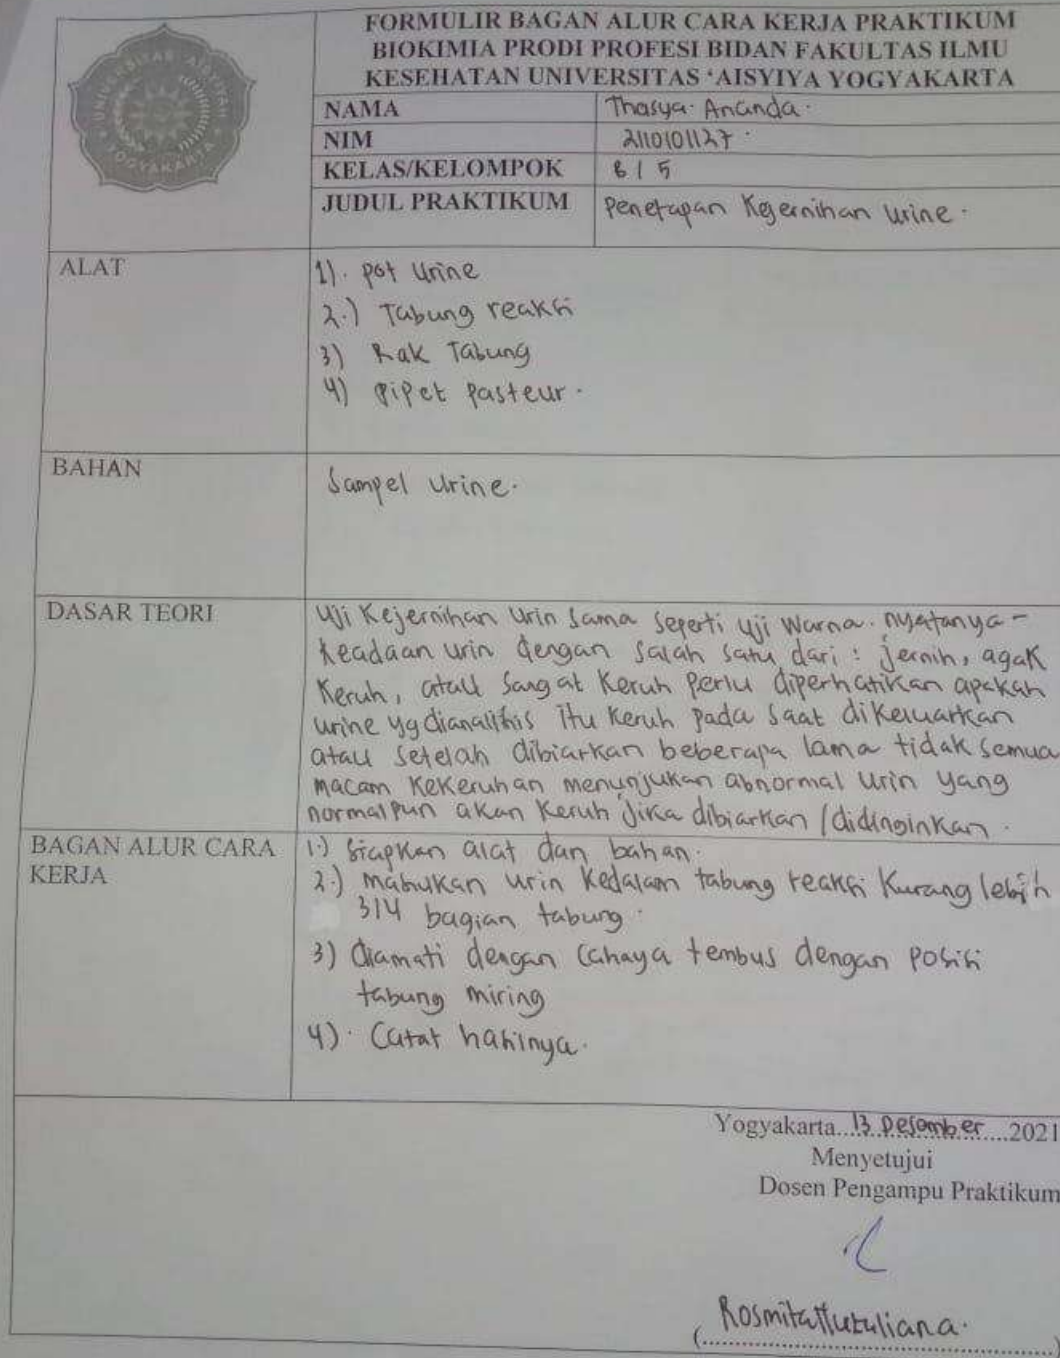 FORMULIR BAGAN ALUR CARA KERJA PRAKTIKUM
BIOKIMIA PRODI PROFESI BIDAN FAKULTAS ILMU
KESEHATAN UNIVERSITAS ‘AISYIYA YOGYAKARTA
NAMA Thasya Ananda.
NIM 2110101127.
KELAS/KELOMPOK B / 5
JUDUL PRAKTIKUM Penetapan Kejernihan Urine.
ALAT
1). pot Urine
2.) Tabung reaksi
3) Rak Tabung
4) pipet Pasteur.
BAHAN
Sampel Urine.
DASAR TEORI
Uji Kejernihan Urin Sama Seperti Uji Warna. nyatanya -
keadaan urin dengan salah satu dari : jernih, agak
Keruh, atau Sangat Keruh Perlu diperhatikan apakah
urine yg dianalisis itu Keruh pada saat dikeluarkan
atau setelah dibiarkan beberapa lama tidak semua
macam Kekeruhan menunjukan abnormal Urin yang
normalpun akan Keruh Jika dibiarkan / didinginkan.
BAGAN ALUR CARA
KERJA
1.) Siapkan alat dan bahan.
2.) masukan urin Kedalam tabung reaksi Kurang lebih
3/4 bagian tabung.
3) diamati dengan Cahaya tembus dengan Posisi
tabung miring
4). Catat hasilnya.
Yogyakarta...13 Desember....2021
Menyetujui
Dosen Pengampu Praktikum